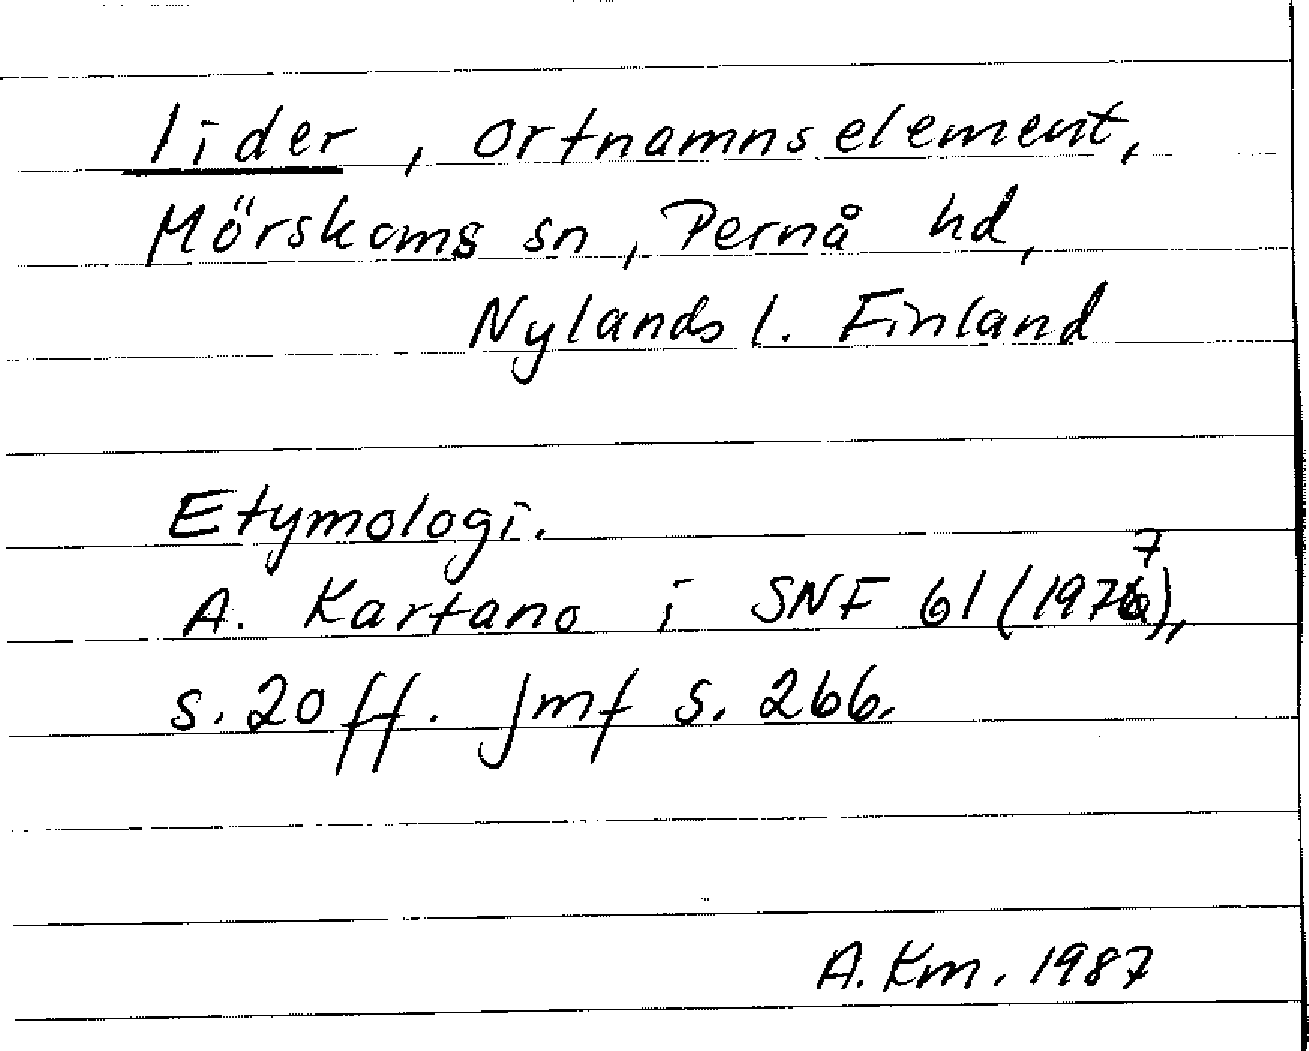 lider, ortnamnselement,
Mörskoms sn, Pernå hd,
Nylands l. Finland
Etymologi.
A. Kartano i SNF 61 (1977),
s. 20 ff. Jmf s. 266.
A. Km. 1987